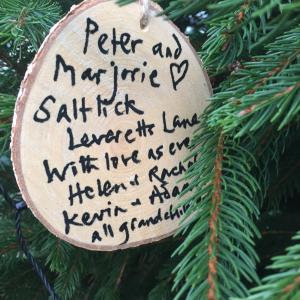 Peter and
Marjorie ♡
Saltlick
Leveretts Lane
With love as ever
Helen + Rachel
Kevin + Adam
all grandchildren